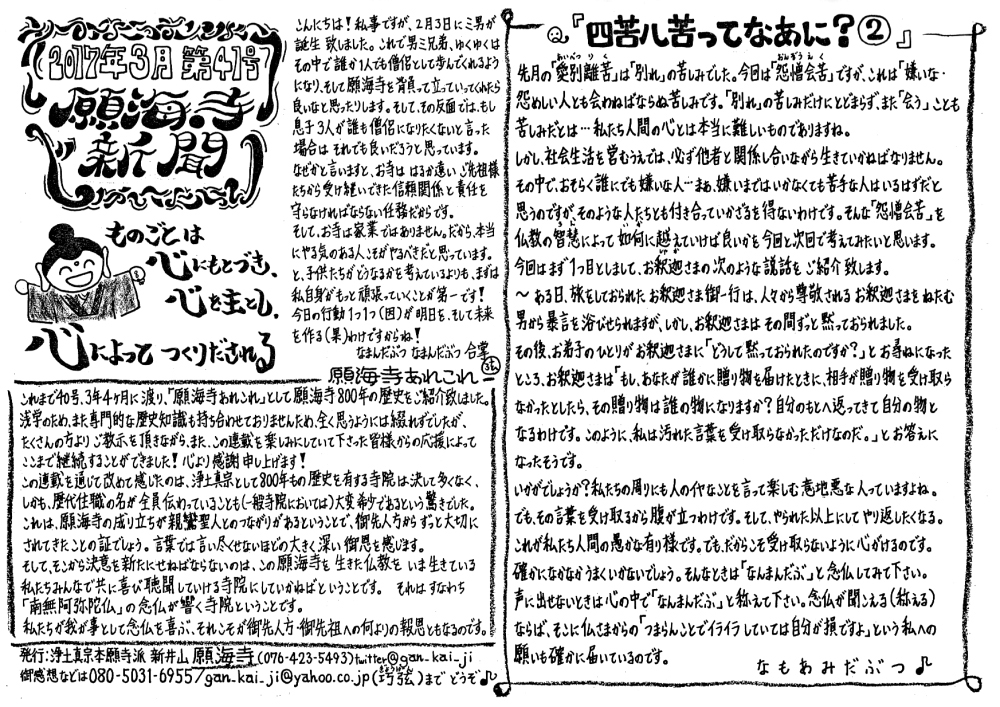 2017年3月 第41号
願海寺
新聞
ものごとは
心にもとづき、
心を主とし、
心によって つくりだされる
こんにちは！私事ですが、2月3日に三男が
誕生致しました。これで男三兄弟、ゆくゆくは
その中で誰か1人でも僧侶として歩んでくれるよう
になり、そして願海寺を背負って立っていってくれたら
良いなと思ったりします。そして、その反面では、もし
息子3人が誰も僧侶になりたくないと言った
場合は それでも良いだろうと思っています。
なぜかと言いますと、お寺は はるか遠い ご先祖様
たちから受け継いできた信頼関係と責任を
守らなければならない任務だからです。
そして、お寺は家業ではありません。だから、本当
にやる気のある人こそがやるべきだと思っています。
と、子供たちがどうなるかを考えているよりも、まずは
私自身がもっと頑張っていくことが第一です！
今日の行動1つ1つ(因)が明日を、そして未来
を作る(果)わけですからね！
なまんだぶつ なまんだぶつ 合掌
願海寺あれこれ
これまで40号、3年4ヶ月に渡り、「願海寺あれこれ」として願海寺800年の歴史をご紹介致しました。
浅学のため、また専門的な歴史知識も持ち合わせておりませんため、全く思うようには綴れずでしたが、
たくさんの方より ご教示を頂きながら、また、この連載を楽しみにしていて下さった皆様からの応援によって
ここまで継続することができました！心より感謝申し上げます！
この連載を通じて改めて感じたのは、浄土真宗として800年もの歴史を有する寺院は決して多くなく、
しかも、歴代住職の名が全員伝わっていることも(一般寺院においては)大変希少であるという驚きでした。
これは、願海寺の成り立ちが親鸞聖人とのつながりがあるということで、御先人方からずっと大切に
されてきたことの証でしょう。言葉では言い尽くせないほどの大きく深い御恩を感じます。
そして、そこから決意を新たにせねばならないのは、この願海寺を生きた仏教を いま生きている
私たちみんなで共に喜び聴聞していける寺院にしていかねばということです。 それはすなわち
「南無阿弥陀仏」の念仏が響く寺院ということです。
私たちが我が事として念仏を喜ぶ、それこそが御先人方・御先祖への何よりの報恩ともなるのです。
発行:浄土真宗本願寺派 新井山 願海寺(076-423-5493)twitter@gan_kai_ji
御感想などは080-5031-6955/gan_kai_ji@yahoo.co.jp(巧弦)まで どうぞ♪
『四苦八苦ってなあに？②』
先月の「愛別離苦」は「別れ」の苦しみでした。今回は「怨憎会苦」ですが、これは「嫌いな・
怨めしい人とも会わねばならぬ苦しみです。「別れ」の苦しみだけにとどまらず、また「会う」ことも
苦しみだとは…私たち人間の心とは本当に難しいものでありますね。
しかし、社会生活を営むうえでは、必ず他者と関係し合いながら生きていかねばなりません。
その中で、おそらく誰にでも嫌いな人…まぁ、嫌いまではいかなくても苦手な人はいるはずだと
思うのですが、そのような人たちとも付き合っていかざるを得ないわけです。そんな「怨憎会苦」を
仏教の智慧によって如何に越えていけば良いかを今回と次回で考えてみたいと思います。
今回はまず1つ目としまして、お釈迦さまの次のような説話をご紹介致します。
～ある日、旅をしておられた お釈迦さま御一行は、人々から尊敬される お釈迦さまをねたむ
男から暴言を浴びせられますが、しかし、お釈迦さまは その間ずっと黙っておられました。
その後、お弟子のひとりがお釈迦さまに「どうして黙っておられたのですか？」とお尋ねになった
ところ、お釈迦さまは「もし、あなたが誰かに贈り物を届けたときに、相手が贈り物を受け取ら
なかったとしたら、その贈り物は誰の物になりますか？自分のもとへ返ってきて自分の物と
なるわけです。このように、私は汚れた言葉を受け取らなかっただけなのだ。」とお答えに
なったそうです。
いかがでしょうか？私たちの周りにも人のイヤなことを言って楽しむ意地悪な人っていますよね。
でも、その言葉を受け取るから腹が立つわけです。そして、やられた以上にしてやり返したくなる。
これが私たち人間の愚かな有り様です。でも、だからこそ受け取らないように心がけるのです。
確かになかなかうまくいかないでしょう。そんなときは「なんまんだぶ」と念仏してみて下さい。
声に出せないときは心の中で「なんまんだぶ」と称えて下さい。念仏が聞こえる(称える)
ならば、そこに仏さまからの「つまらんことでイライラしていては自分が損ですよ」という私への
願いも確かに届いているのです。
なもあみだぶつ♪